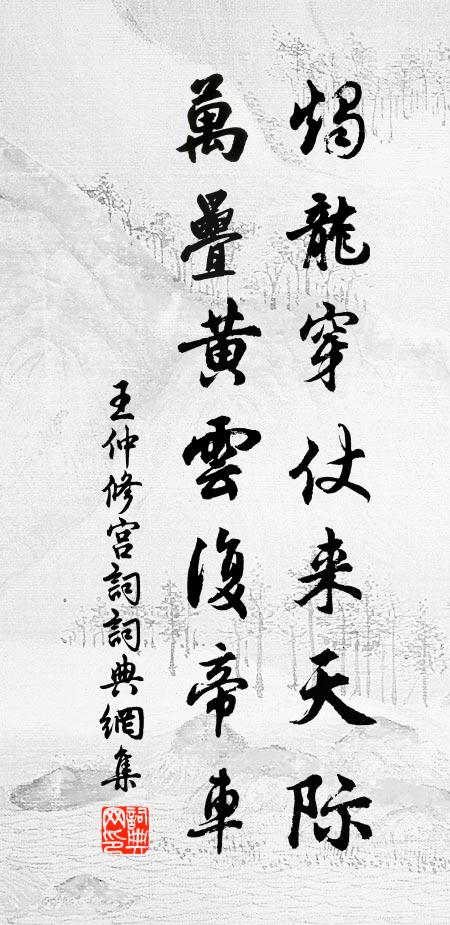 燭龍穿仗来天际
萬疊黃雲復帝車
王仲修宮詞詞典網集
詞典網印